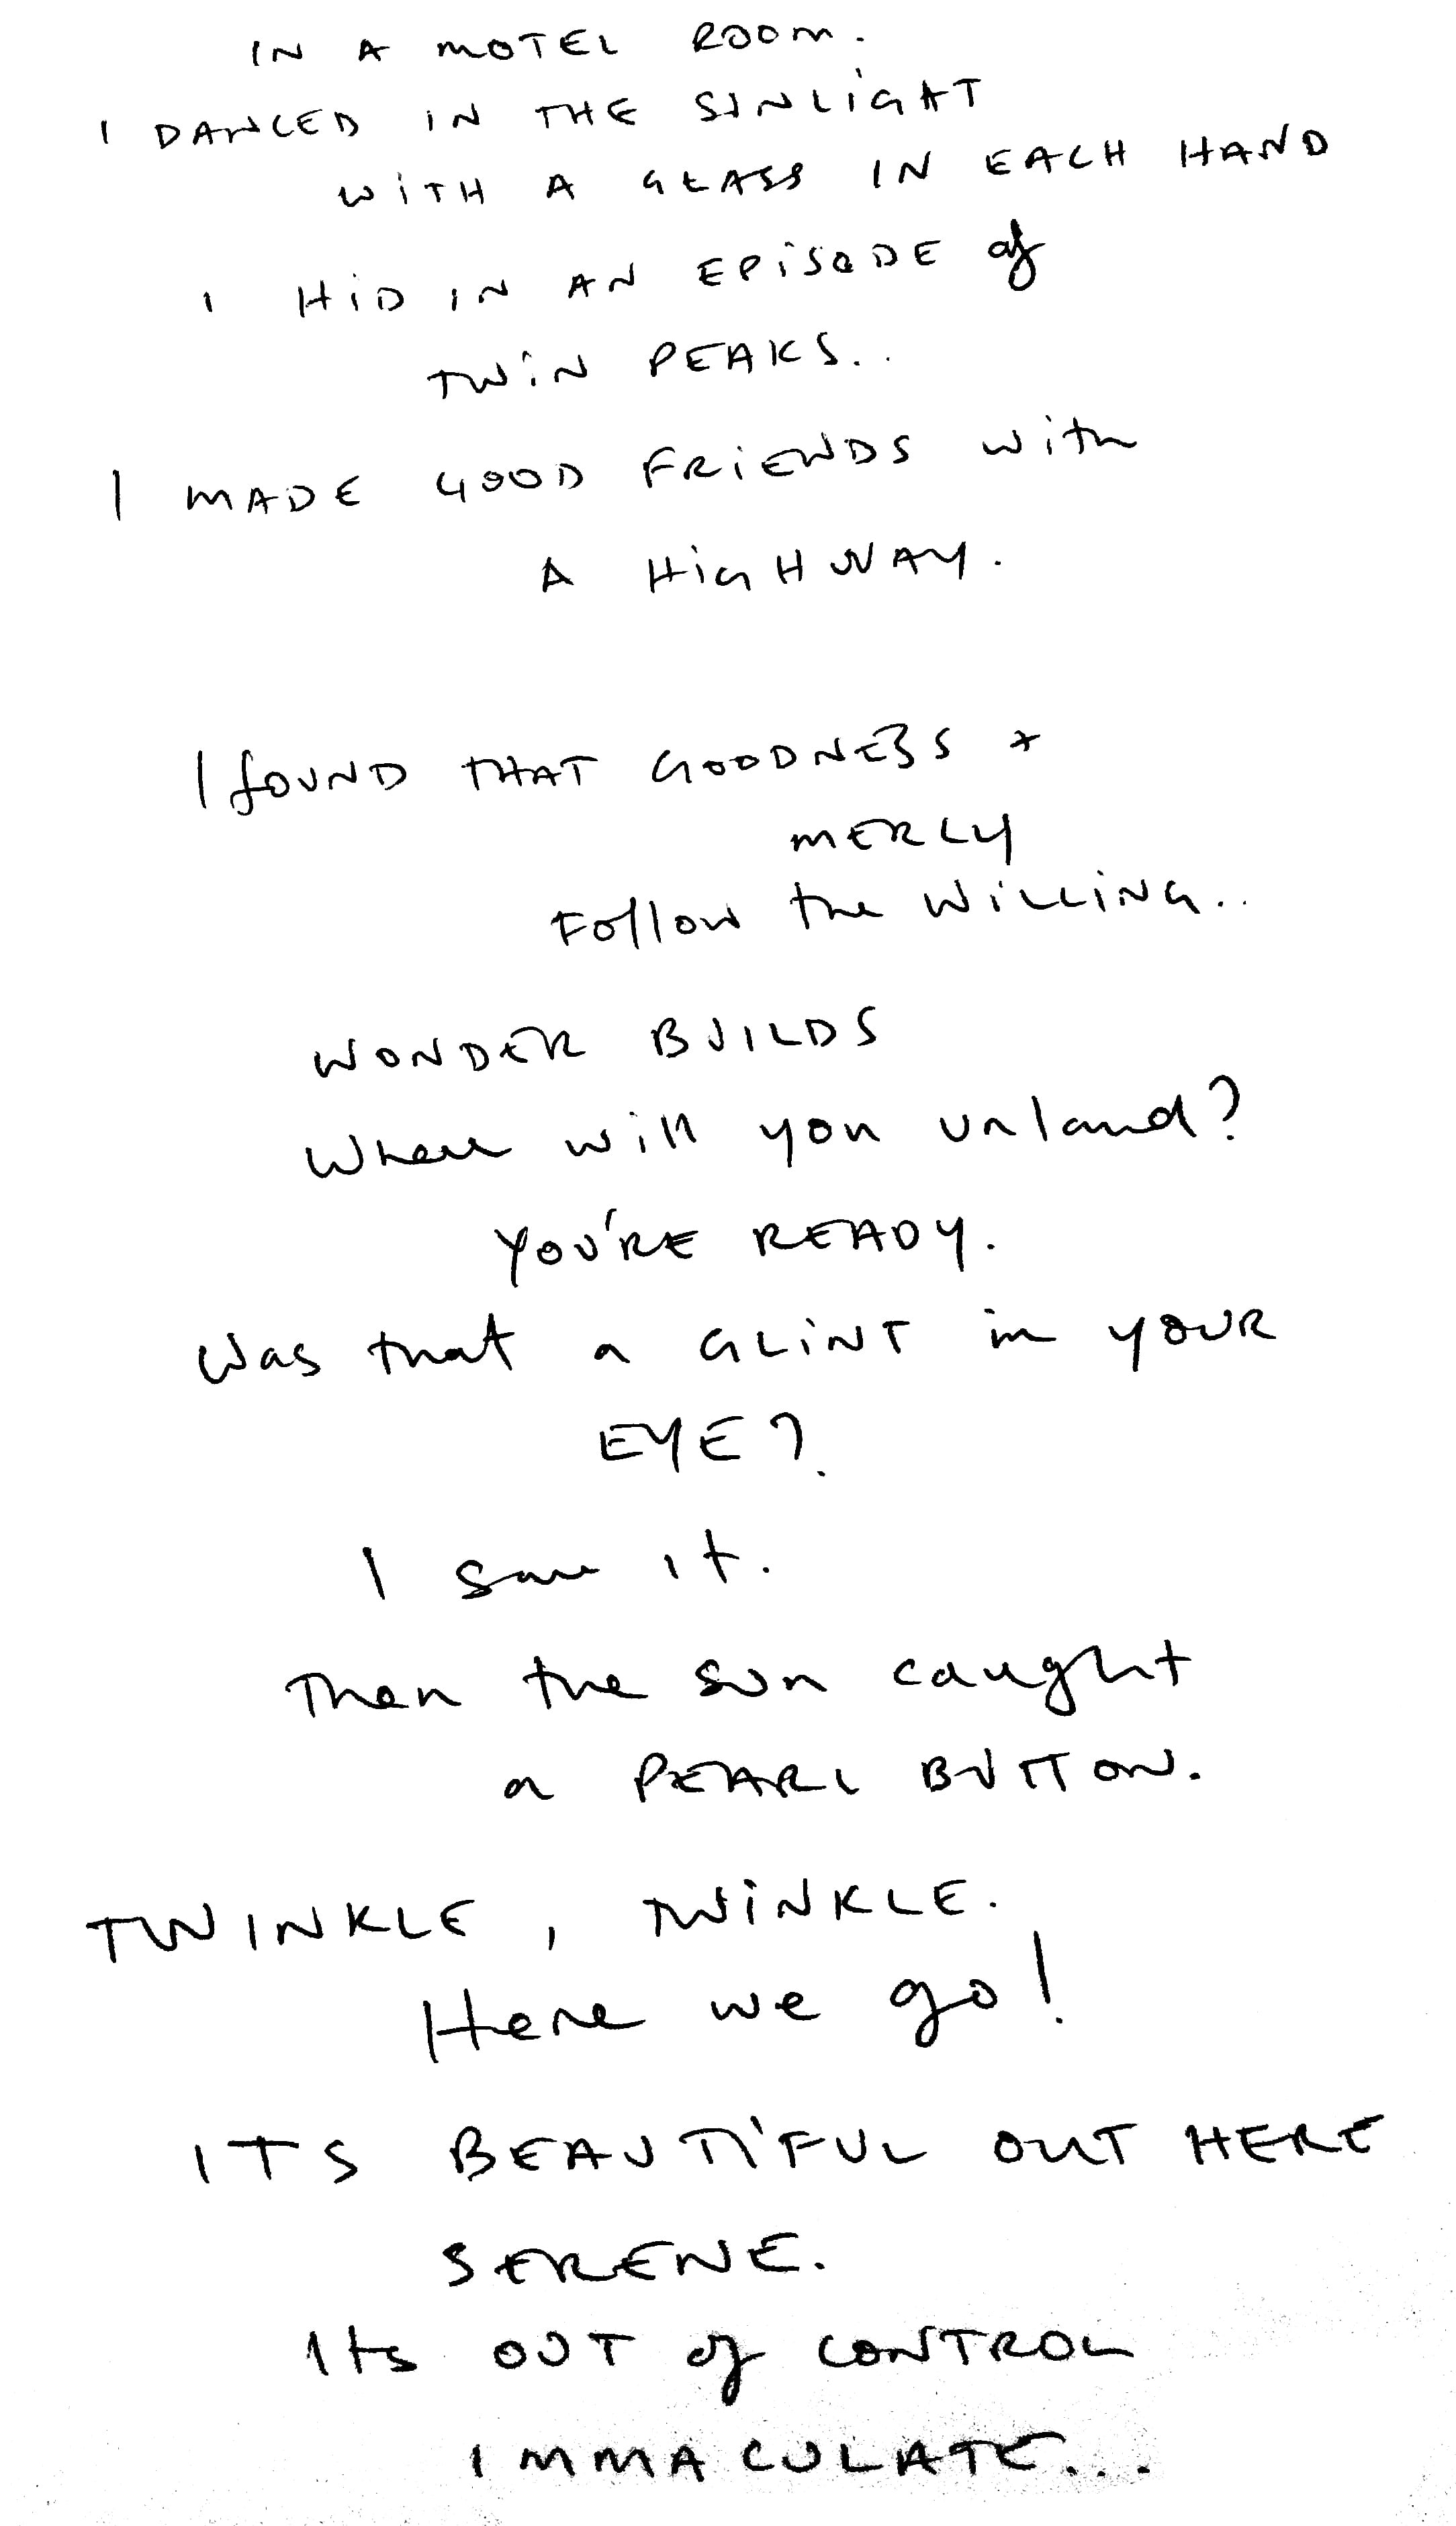 IN A MOTEL ROOM.
I DANCED IN THE SUNLIGHT
WITH A GLASS IN EACH HAND
I HID IN AN EPISODE of
TWIN PEAKS..
I MADE GOOD FRIENDS with
A HIGHWAY.
I fOUND THAT GOODNESS +
MERLY
Follow the WILLING..
WONDER BUILDS
Where will you unland?
YOU'RE READY.
Was that a GLINT in YOUR
EYE?
I saw it.
Then the sun caught
a PEARL BUTTON.
TWINKLE, TWINKLE.
Here we go!
ITS BEAUTIFUL OUT HERE
SERENE.
Its OUT of CONTROL
IMMACULATE...